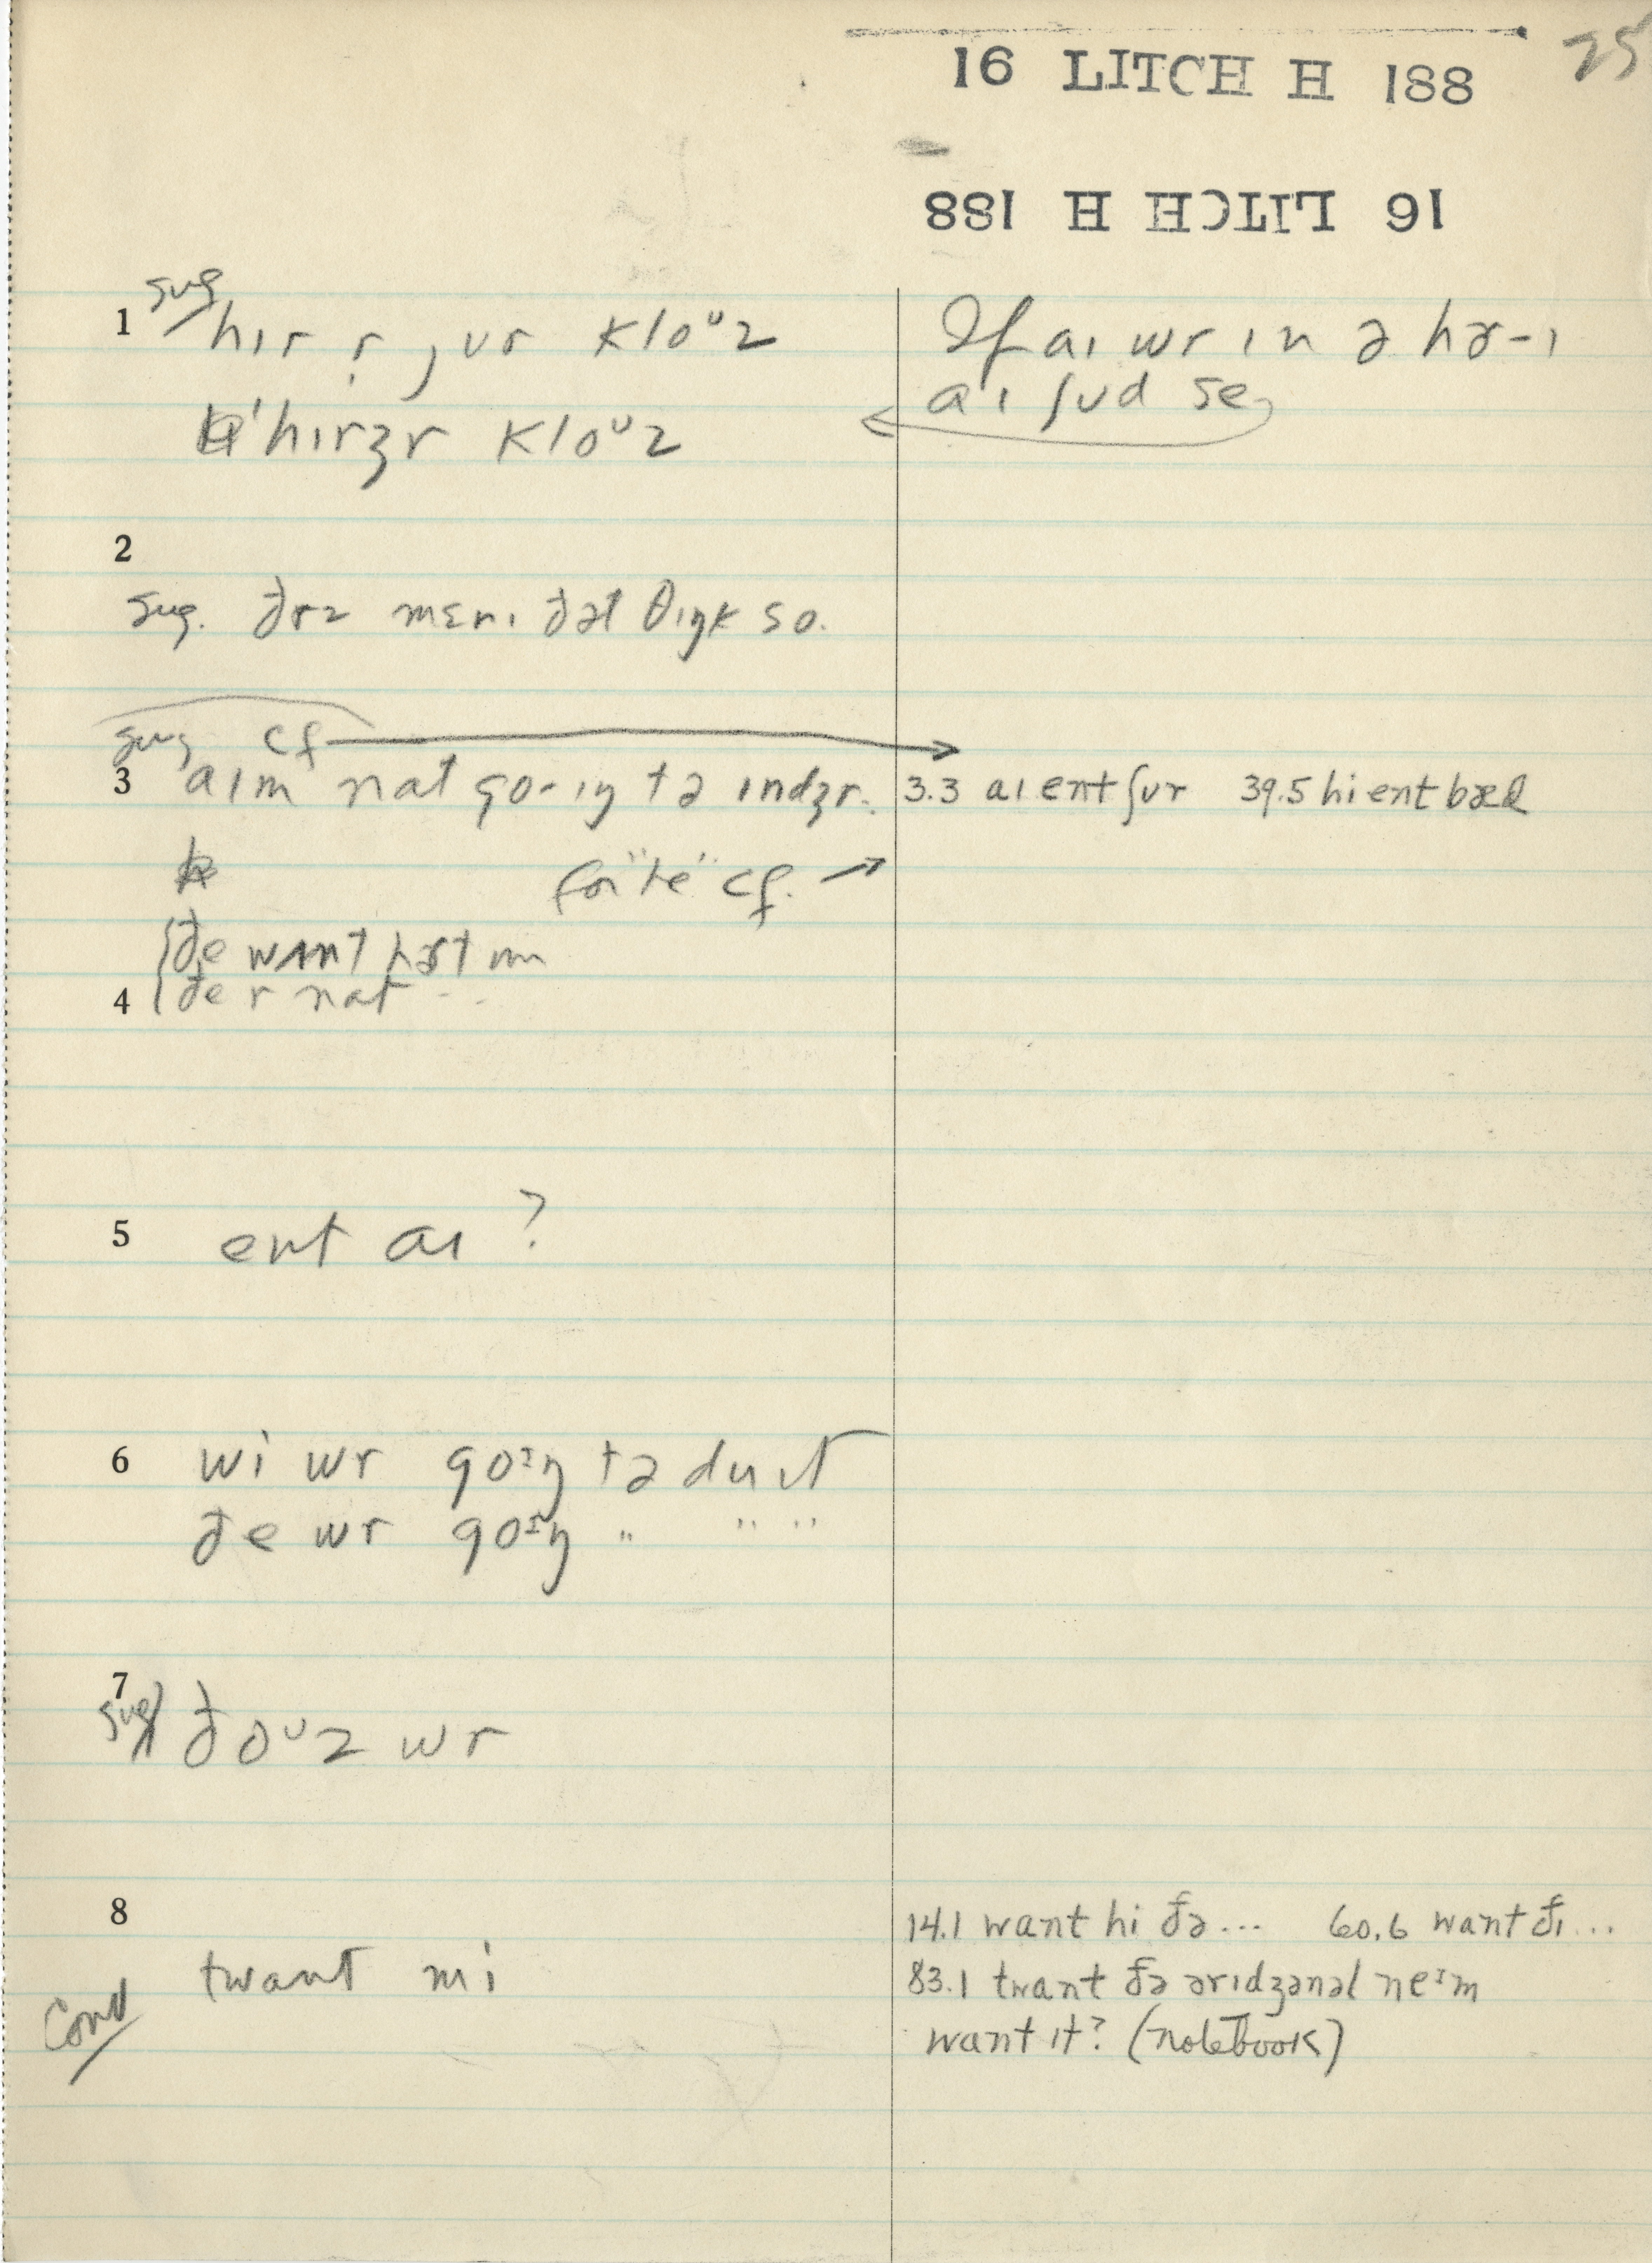 25
16 LITCH H 188
16 LITCH H 188
1 sug hɪr r jʊr kloᶷz
ˈhɪrzr kloᶷz
If aɪ wr ɪn ə hɚ-ɪ
aɪ ʃʊd se
2
sug. ðrz mɛnɪ ðət θɪŋk so.
sug cf
3 aɪm nat go-ɪŋ tə ɪndʒr.
3.3 aɪ ent ʃʊr 39.5 hi ent bæd
for "te" cf.
ðe want hɚt
4 ðe r nat - -
5 ent aɪ?
6 wi wr goᶦŋ tə du ɪt
ðe wr goᶦŋ " " "
7
sug ðoᶷz wr
8
twant mi
conv
14.1 want hi ðə... 60.6 want ðɪ...
83.1 twant ðə ərɪdʒənəl neᶦm
want ɪt? (notebook)